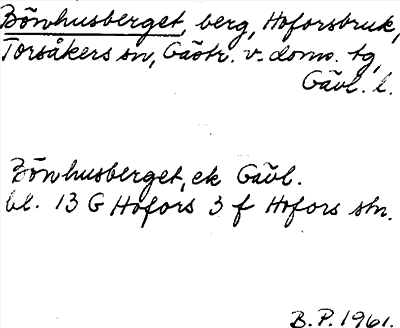 Bönhusberget, berg, Hoforsbruk,
Torsåkers sn, Gästr. v. doms. tg,
Gävl. l.
Bönhusberget, ek Gävl.
bl. 13 G Hofors 3 f Hofors stn.
B.P. 1961.